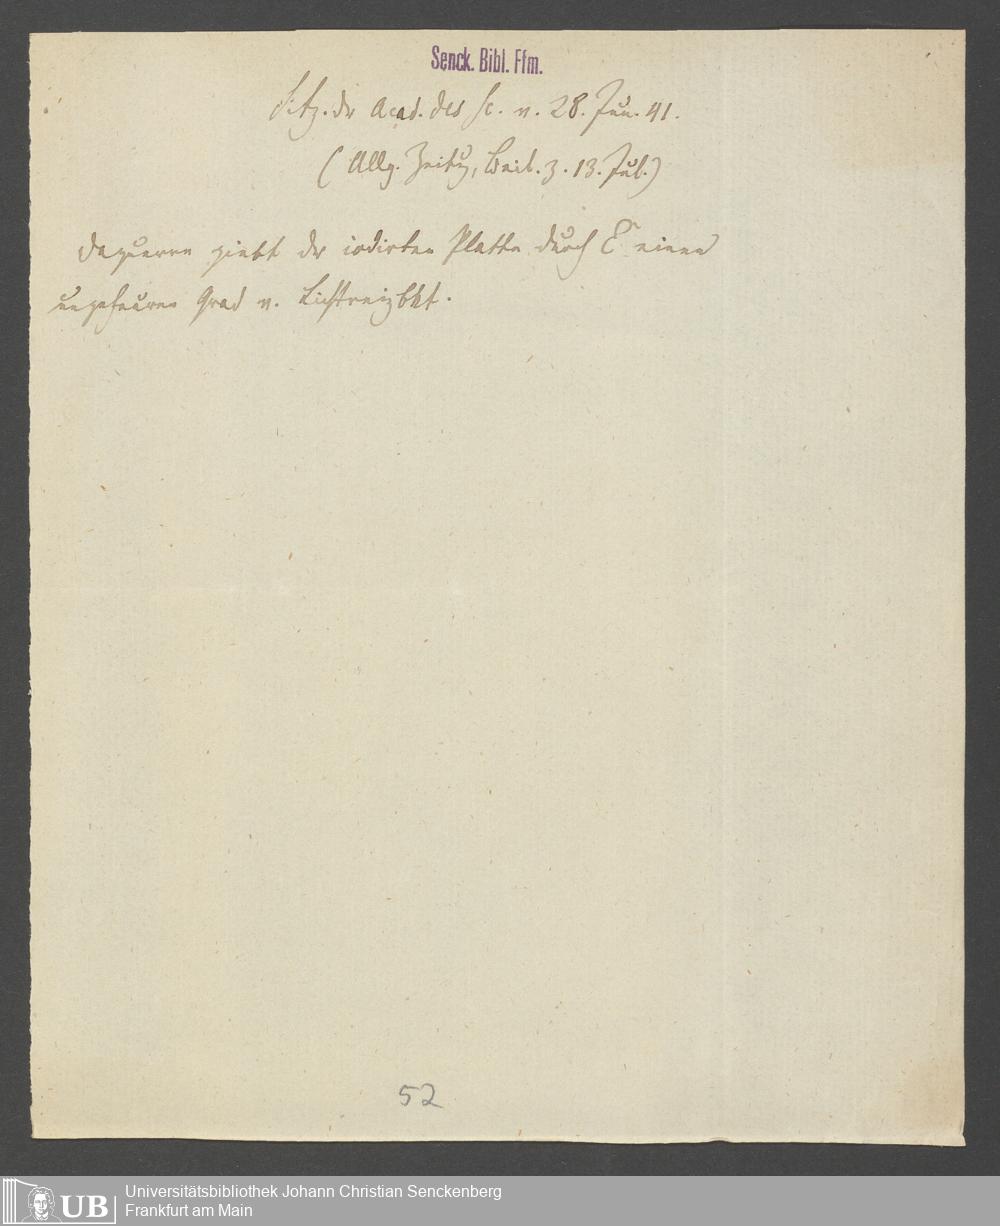 Senck. Bibl. Ffm.
Sitz. dr Acad. des Sc. v. 28. Jun. 41.
(Allg. Zeitg, Beil. z. 13. Jul.)
Daguerre giebt dr iodirten Platte durch E einen
ungeheuren Grad v. Lichtreizbkt.
52
UB
Universitätsbibliothek Johann Christian Senckenberg
Frankfurt am Main